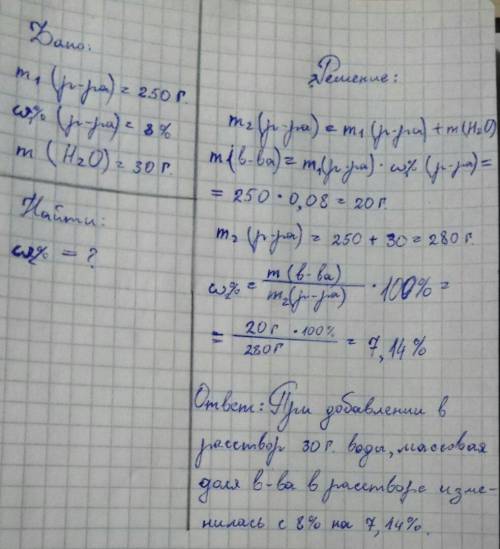 Дано:
m₁ (р-ра) = 250 г.
ω% (р-ра) = 8%
m (H₂O) = 30 г.
Найти:
ω% = ?
Решение:
m₂ (р-ра) = m₁ (р-ра) + m(H₂O)
m (в-ва) = m₁(р-ра) · ω% (р-ра) =
= 250 · 0,08 = 20 г.
m₂ (р-ра) = 250 + 30 = 280 г.
ω% = m (в-ва) / m₂(р-ра) · 100% =
= 20 г · 100% / 280 г = 7,14%
Ответ: При добавлении в
расствор 30 г. воды, массовая
доля в-ва в расстворе изме-
нилась с 8% на 7,14%.